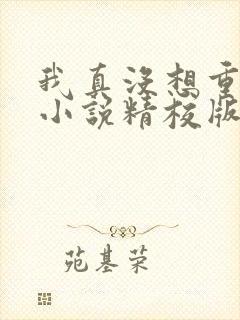 我真没想重
小说精校版
苑基荣